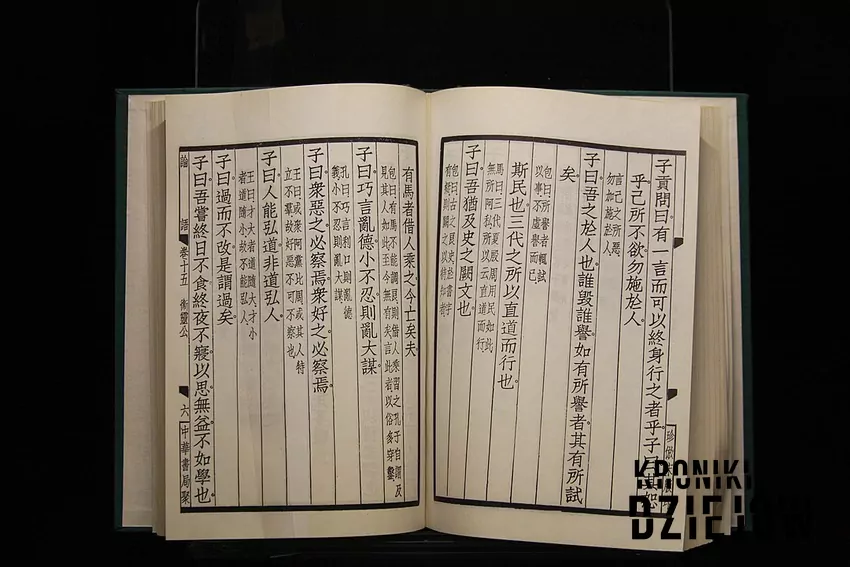 子貢問曰有一言而可以終身行之者乎子曰其恕
乎己所不欲勿施扵人
言己之所惡
勿加施扵人
子曰吾之扵人也誰毀誰譽如有所譽者其有所試
矣
包曰所譽者輒試
以事不虛譽而已
斯民也三代之所以直道而行也
馬曰三代夏殷周用民如此
無所阿私所以云直道而行
子曰吾猶及史之闕文也
包曰古之良史扵書字
有疑則闕之以待知者
有馬者借人乘之今亡矣夫
包曰有馬不能調良則借人乘習之孔子自謂及
見其人如此至今無有矣言此者以俗多穿鑿
子曰巧言亂德小不忍則亂大謀
孔曰巧言利口則亂德
義小不忍則亂大謀
子曰衆惡之必察焉衆好之必察焉
王曰或衆阿黨比周或其人特
立不羣故好惡不可不察也
子曰人能弘道非道弘人
王曰才大者道隨大才小
者道隨小故不能弘人
子曰過而不改是謂過矣
子曰吾嘗終日不食終夜不寢以思無益不如學也
論語 卷十五 衛靈公 六 中華書局聚
KRONIKI
DZIEJÓW